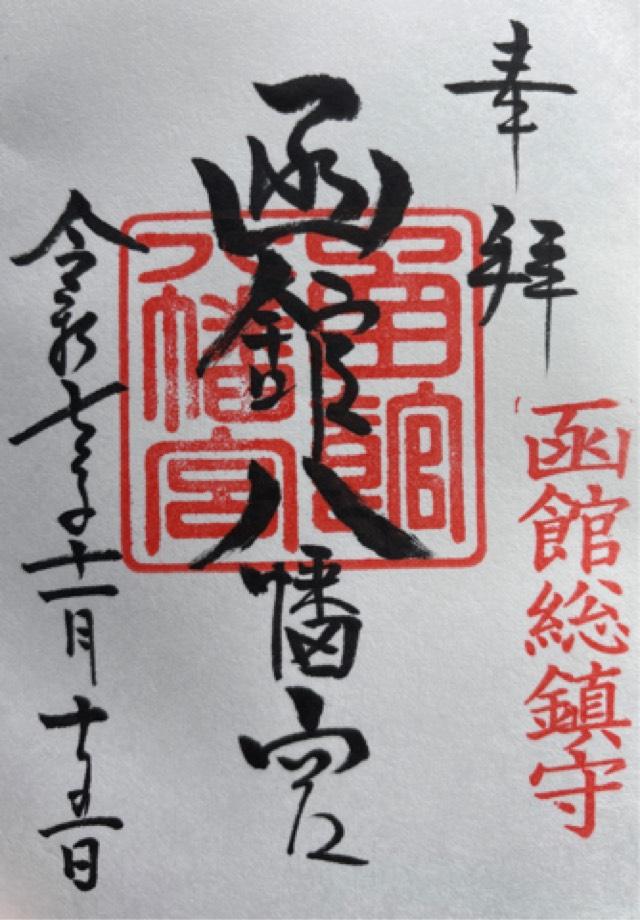 奉拝
函館総鎮守
函館八幡宮
函館八幡宮
令和七年十一月十五日